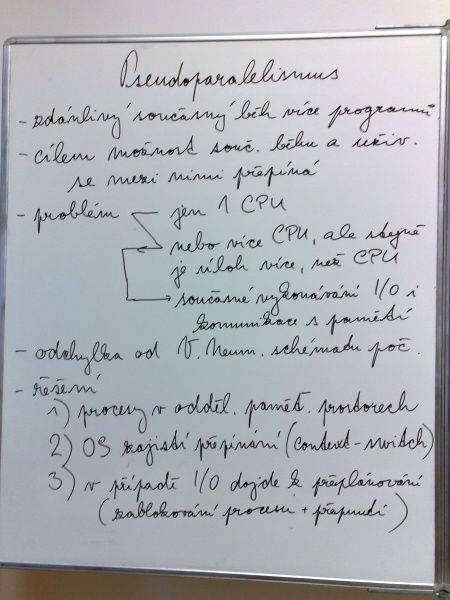 Pseudoparalelismus
- zdánlivý současný běh více programů
- cílem možnost souč. běhu a uživ.
se mezi nimi přepíná
- problém
jen 1 CPU
nebo více CPU, ale stejně
je úloh více, než CPU
současné vykonávání I/O i
komunikace s pamětí
- odchylka od V. Neum. schématu poč.
- řešení
1) procesy v odděl. paměť. prostorech
2) OS zajistí přepínání (context-switch)
3) v případě I/O dojde k přeplánování
(zablokování procesu + přepnutí)